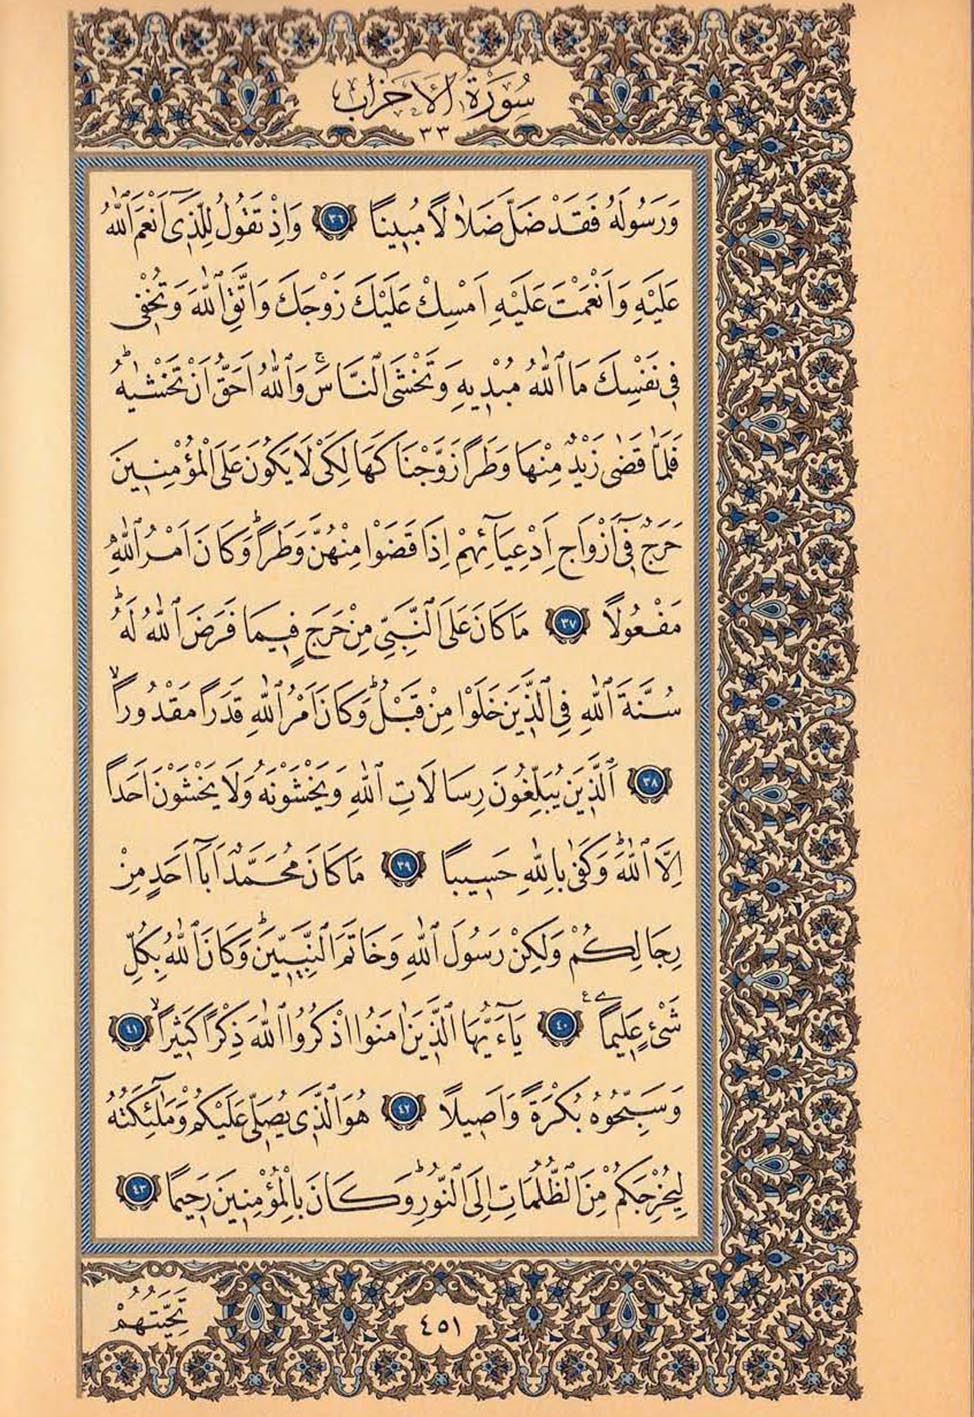 سُورَةُ الْاَحْزَابِ
٣٣
وَرَسُولَهُ فَقَدْ ضَلَّ ضَلَالًا مُبِينًا ٣٦ وَاِذْ تَقُولُ لِلَّذٖٓى اَنْعَمَ اللّٰهُ
عَلَيْهِ وَاَنْعَمْتَ عَلَيْهِ اَمْسِكْ عَلَيْكَ زَوْجَكَ وَاتَّقِ اللّٰهَ وَتُخْفٖى
فٖى نَفْسِكَ مَا اللّٰهُ مُبْدٖيهِ وَتَخْشَى النَّاسَۚ وَاللّٰهُ اَحَقُّ اَنْ تَخْشٰيهُؕ
فَلَمَّا قَضٰى زَيْدٌ مِنْهَا وَطَرًا زَوَّجْنَاكَهَا لِكَىْ لَا يَكُونَ عَلَى الْمُؤْمِنٖينَ
حَرَجٌ فٖٓى اَزْوَاجِ اَدْعِيَٓائِهِمْ اِذَا قَضَوْا مِنْهُنَّ وَطَرًاؕ وَكَانَ اَمْرُ اللّٰهِ
مَفْعُولًا ٣٧ مَا كَانَ عَلَى النَّبِىِّ مِنْ حَرَجٍ فٖيمَا فَرَضَ اللّٰهُ لَهُؕ
سُنَّةَ اللّٰهِ فِى الَّذٖينَ خَلَوْا مِنْ قَبْلُؕ وَكَانَ اَمْرُ اللّٰهِ قَدَرًا مَقْدُورًاۙ
٣٨ اَلَّذٖينَ يُبَلِّغُونَ رِسَالَاتِ اللّٰهِ وَيَخْشَوْنَهُ وَلَا يَخْشَوْنَ اَحَدًا
اِلَّا اللّٰهَؕ وَكَفٰى بِاللّٰهِ حَسٖيبًا ٣٩ مَا كَانَ مُحَمَّدٌ اَبَٓا اَحَدٍ مِنْ
رِجَالِكُمْ وَلٰكِنْ رَسُولَ اللّٰهِ وَخَاتَمَ النَّبِيّٖنَؕ وَكَانَ اللّٰهُ بِكُلِّ
شَىْءٍ عَلٖيمًا ٤٠ يَٓا اَيُّهَا الَّذٖينَ اٰمَنُوا اذْكُرُوا اللّٰهَ ذِكْرًا كَثٖيرًاۙ ٤١
وَسَبِّحُوهُ بُكْرَةً وَاَصٖيلًا ٤٢ هُوَ الَّذٖى يُصَلّٖى عَلَيْكُمْ وَمَلٰٓئِكَتُهُ
لِيُخْرِجَكُمْ مِنَ الظُّلُمَاتِ اِلَى النُّورِؕ وَكَانَ بِالْمُؤْمِنٖينَ رَحٖيمًا ٤٣
تَحِيَّتُهُمْ
٤٥١